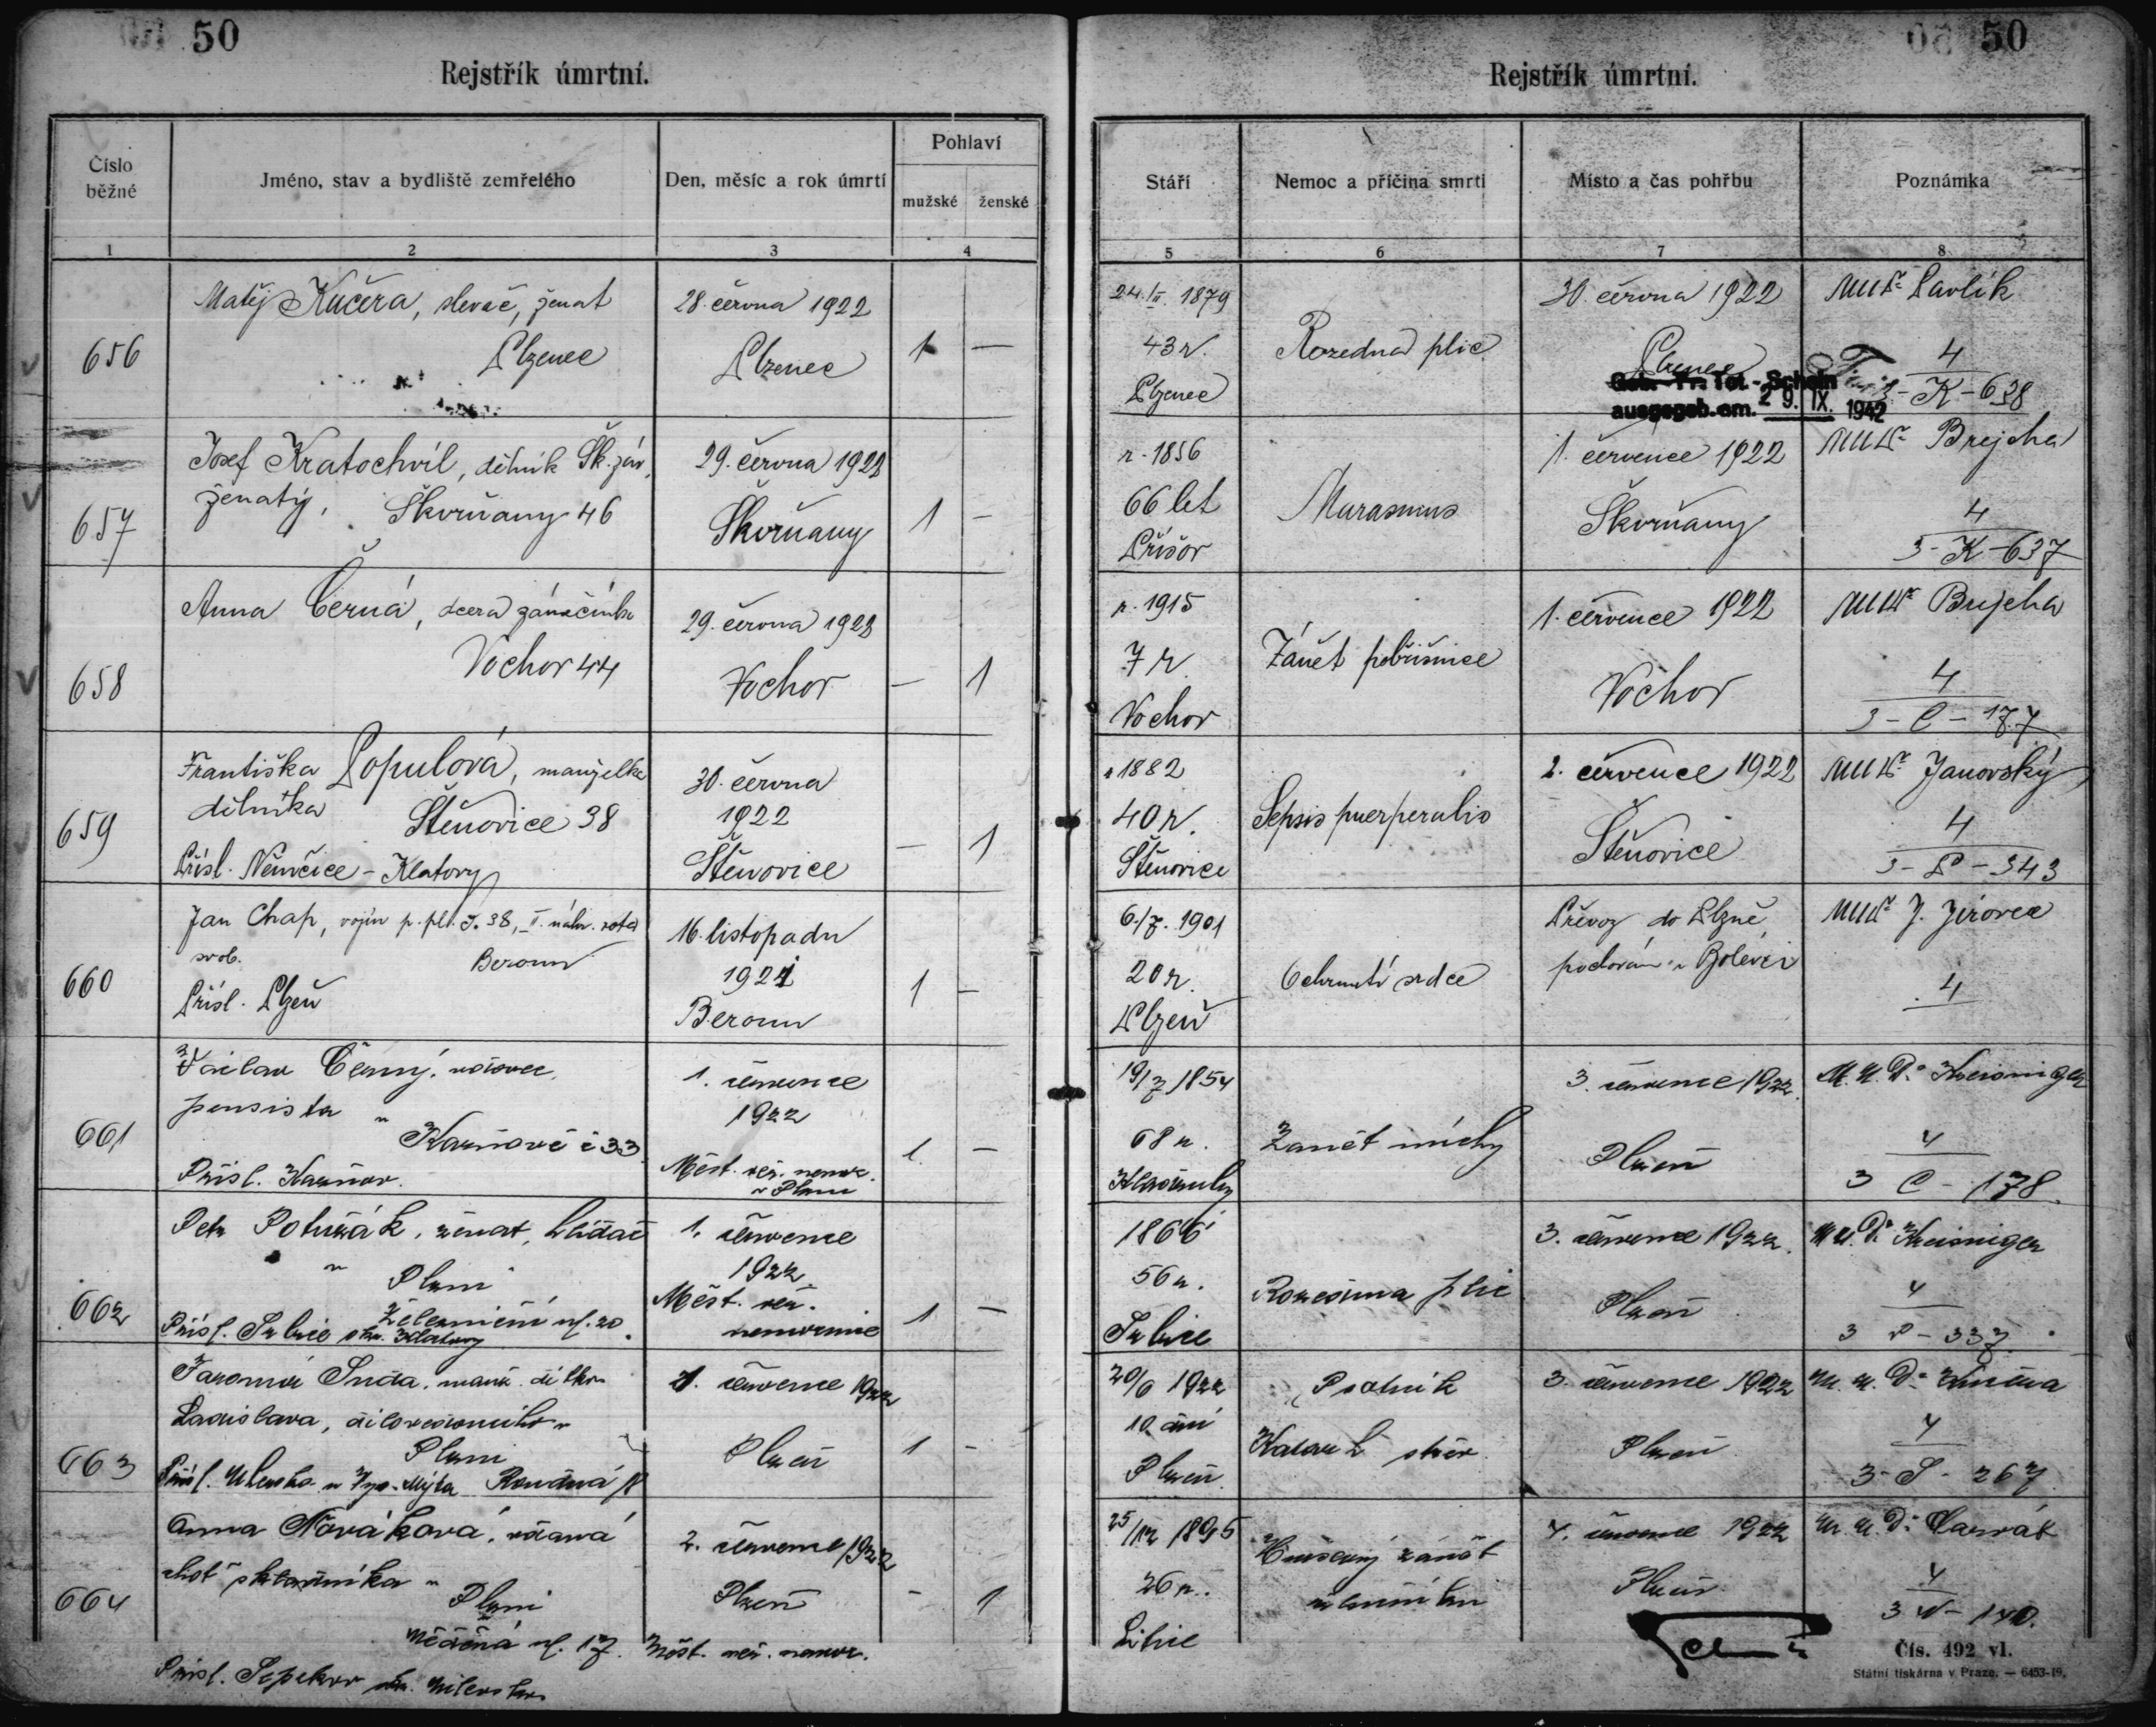 50
Rejstřík úmrtní.
Číslo běžné
Jméno, stav a bydliště zemřelého
Den, měsíc a rok úmrtí
Pohlaví
mužské
ženské
1
2
3
4
656
Matěj Kučera, slevač, ženat
Plzenec
28. června 1922
Plzenec
1 —
657
Josef Kratochvíl, dělník Šk. záv,
ženatý, Škvrňany 46
29. června 1922
Škvrňany
1 —
658
Anna Černá, dcera
Vochov 44
29. června 1922
Vochov
— 1
659
Františka Populová, manželka
dělníka Štěnovice 38
Přísl. Němčice - Klatovy
30. června
1922
Štěnovice
— 1
660
Jan Chap, vojín p. pl. č. 38, II. náhr. rota
svob. Beroun
Přísl. Plzeň
16. listopadu
1921
Beroun
1 —
661
Václav Černý, vdovec,
pensista v Kaznově č 33
Přísl. Kaznov.
1. července
1922
Měst. veř. nemoc.
v Plzni
1. —
662
Petr Potužák, ženat, hlídač
v Plzni
Železniční ul. 20
Přísl. okr. Klatovy
1. července
1922
Měst. veř.
nemocnice
1 —
663
Jaromír Suda, manž. dítko
Ladislava,
Plzni
Přísl. u Vys. Mýta Roudná
1. července 1922
Plzeň
1 -
664
Anna Nováková, vdaná
choť skladníka v
Plzni
ul. 17.
Přísl. Sepekov okr. Milevsko
2. července 1922
Plzeň
Měst. veř. nemoc.
- 1
50
Rejstřík úmrtní.
Stáří
Nemoc a příčina smrti
Místo a čas pohřbu
Poznámka
5
6
7
8
24./II. 1879
43 r.
Plzenec
Rozedma plic
30. června 1922
Plzenec
MUDr. Pavlík
4
3 - K - 638
Geb.-Tr.-Tot.-Schein
ausgegeb. am. 29. IX. 1942
r. 1856
66 let
Příšov
Marasmus
1. července 1922
Škvrňany
MUDr. Brejcha
4
3 - K - 637
r. 1915
7 r.
Vochov
Zánět pobřišnice
1. července 1922
Vochov
MUDr. Brejcha
4
3 - C - 177
r 1882
40 r.
Štěnovice
Sepsis puerperalis
2. července 1922
Štěnovice
MUDr. Janovský
4
3 - P - 343
6./7. 1901
20 r.
Plzeň
Ochrnutí srdce
Převoz do Plzně,
pochován v Bolevci
MUDr. J. Jírovec
4
19/7 1854
68 r.
Zánět míchy
3. července 1922.
Plzeň
M. U. Dr. Kreisinger
4
3 C - 178.
1866
56 r.
Rozedma plic
3. července 1922.
Plzeň
M U. Dr. Kreisinger
4
3 P - 337.
20/6 1922
10 dní
Plzeň
Psotník
Katarrh střev
3. července 1922
Plzeň
M. U. Dr. Kučera
4
3 - S - 267
25/12 1895
26 r.
Litice
Hnisavý zánět
4. července 1922
Plzeň
M. U. Dr.
4
3 N - 140.
Čís. 492 vl.
Státní tiskárna v Praze. — 6453-19.